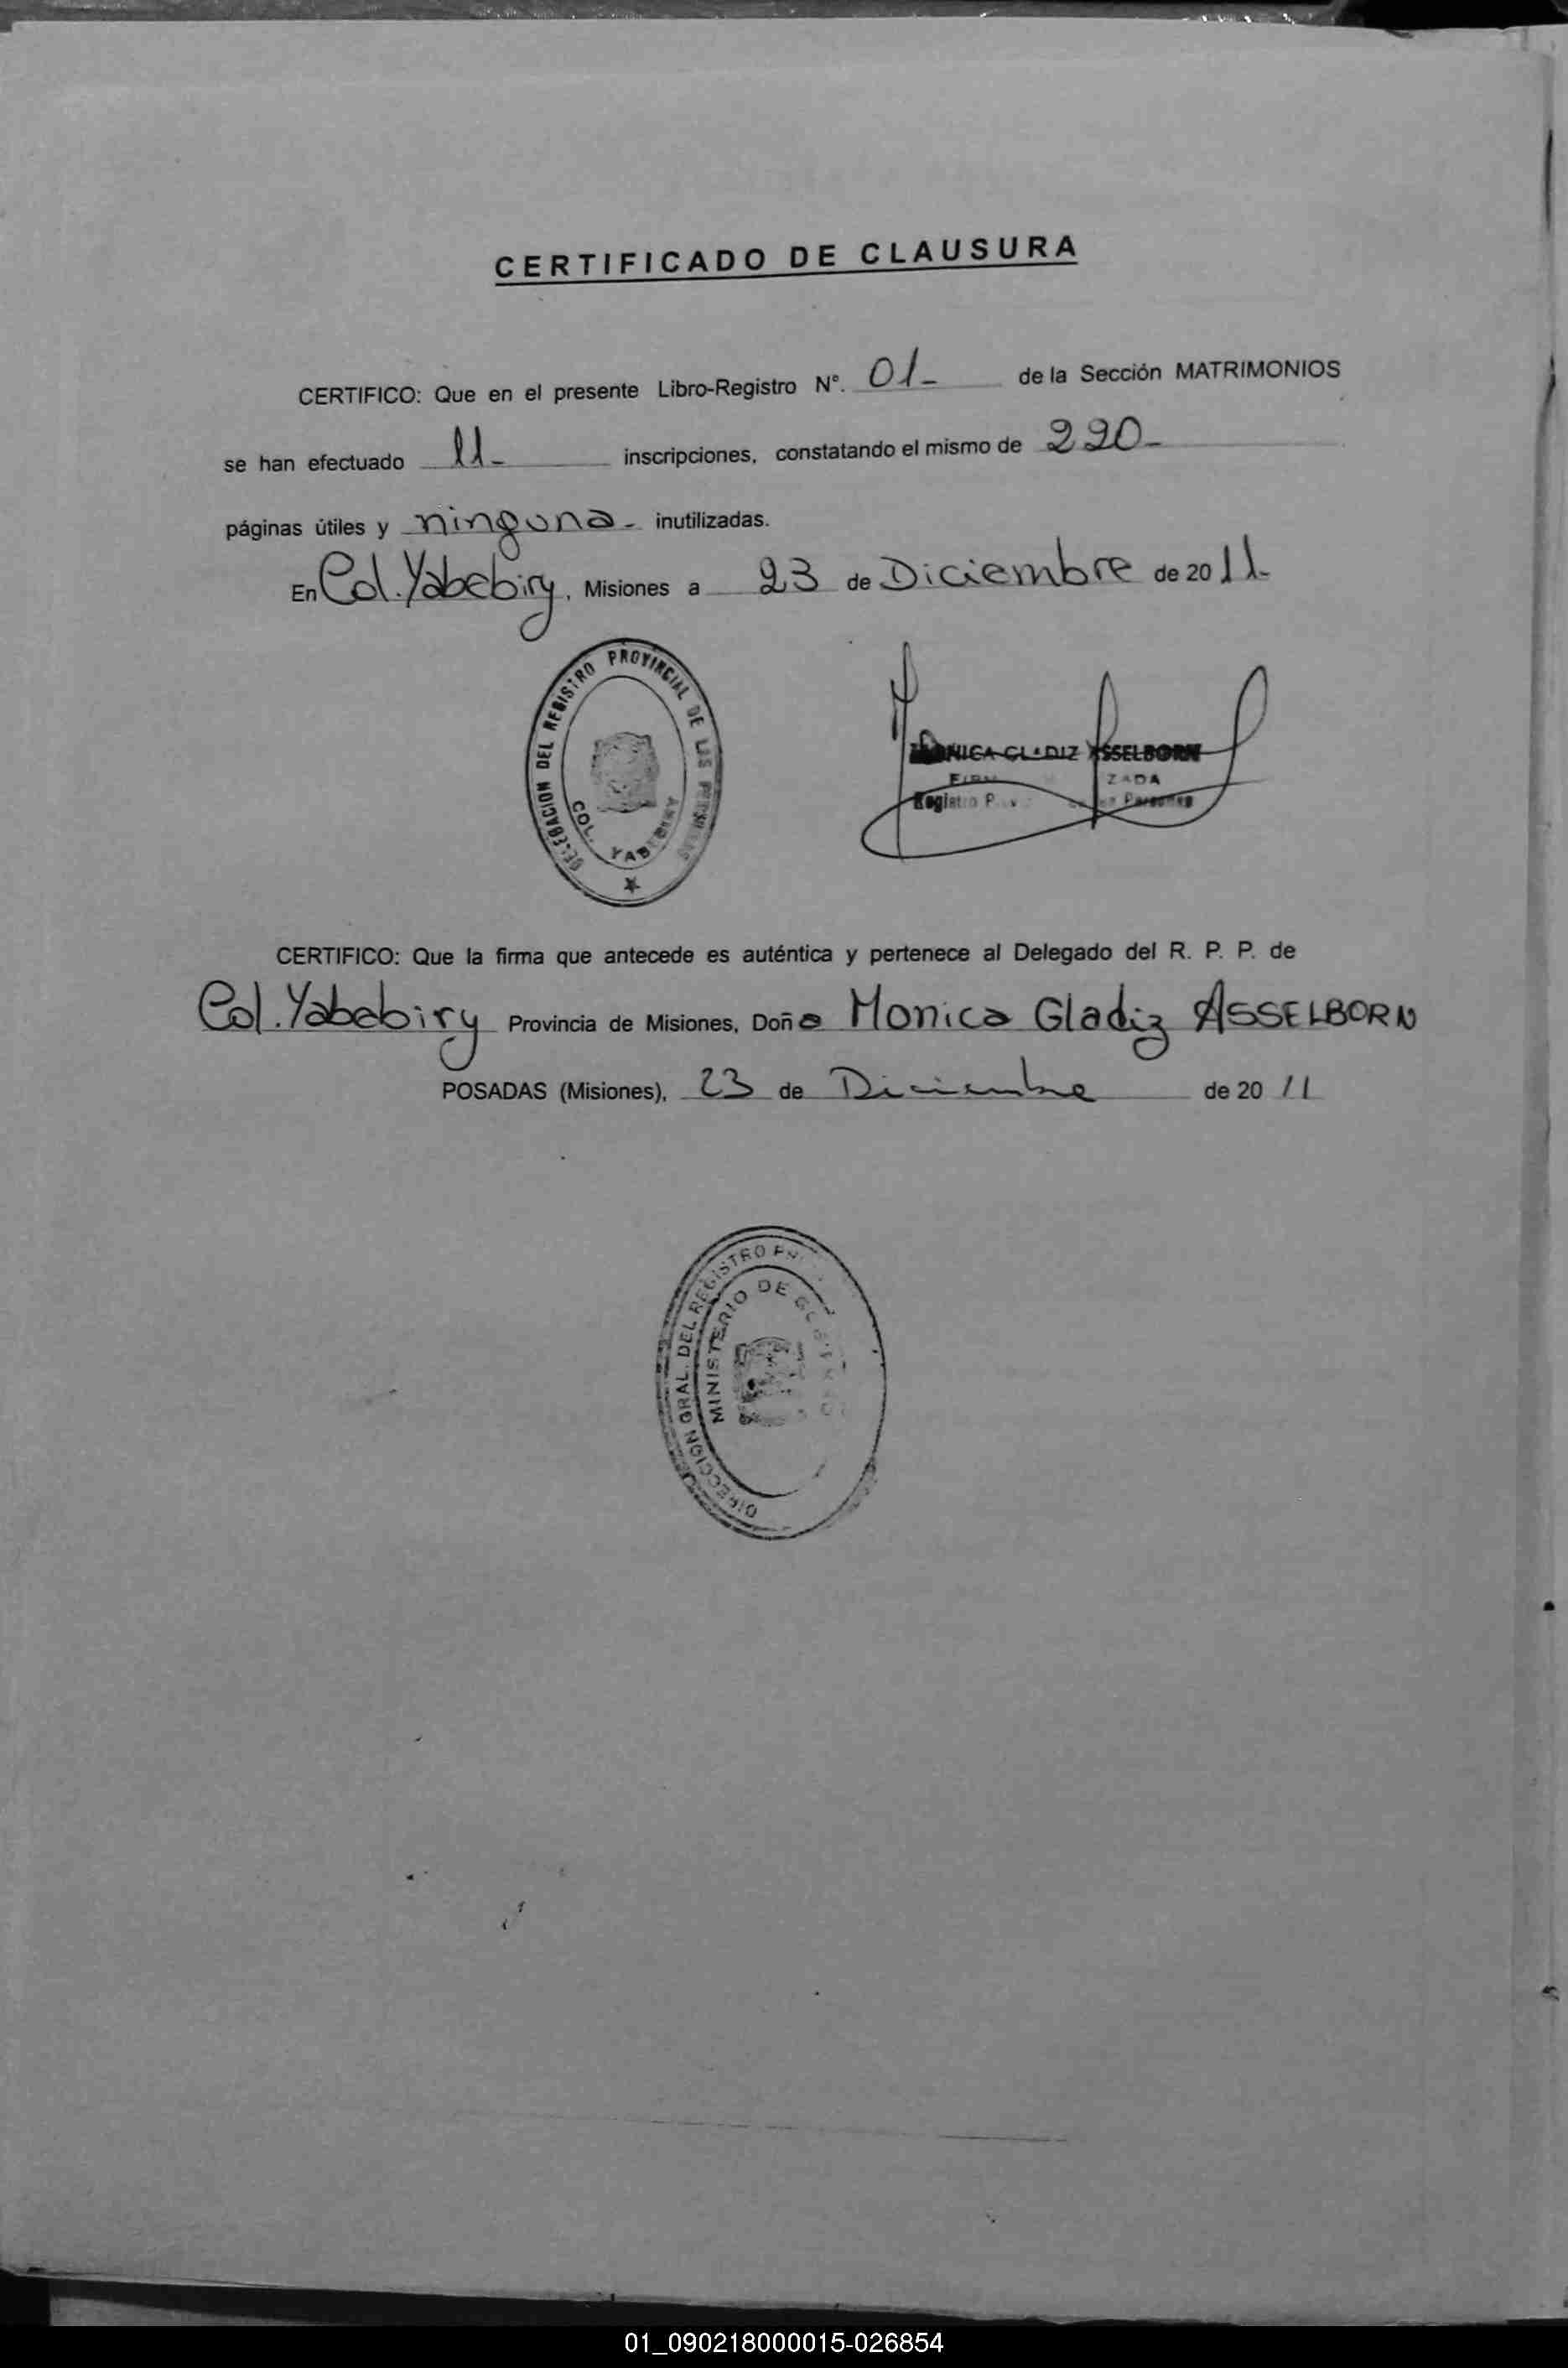 CERTIFICADO DE CLAUSURA
CERTIFICO: Que en el presente Libro-Registro N°. 01- de la Sección MATRIMONIOS
se han efectuado 11- inscripciones, constatando el mismo de 220-
páginas útiles y ninguna- inutilizadas.
En Col. Yabebiry, Misiones a 23 de Diciembre de 2011-
DELEGACION DEL REGISTRO PROVINCIAL DE LAS PERSONAS
COL. YABEBIRY
MONICA GLADIZ ASSELBORN
Registro
CERTIFICO: Que la firma que antecede es auténtica y pertenece al Delegado del R. P. P. de
Col. Yabebiry Provincia de Misiones, Doña Monica Gladiz ASSELBORN
POSADAS (Misiones), 23 de Diciembre de 2011
DIRECCION GRAL. DEL REGISTRO
MINISTERIO DE
01_090218000015-026854